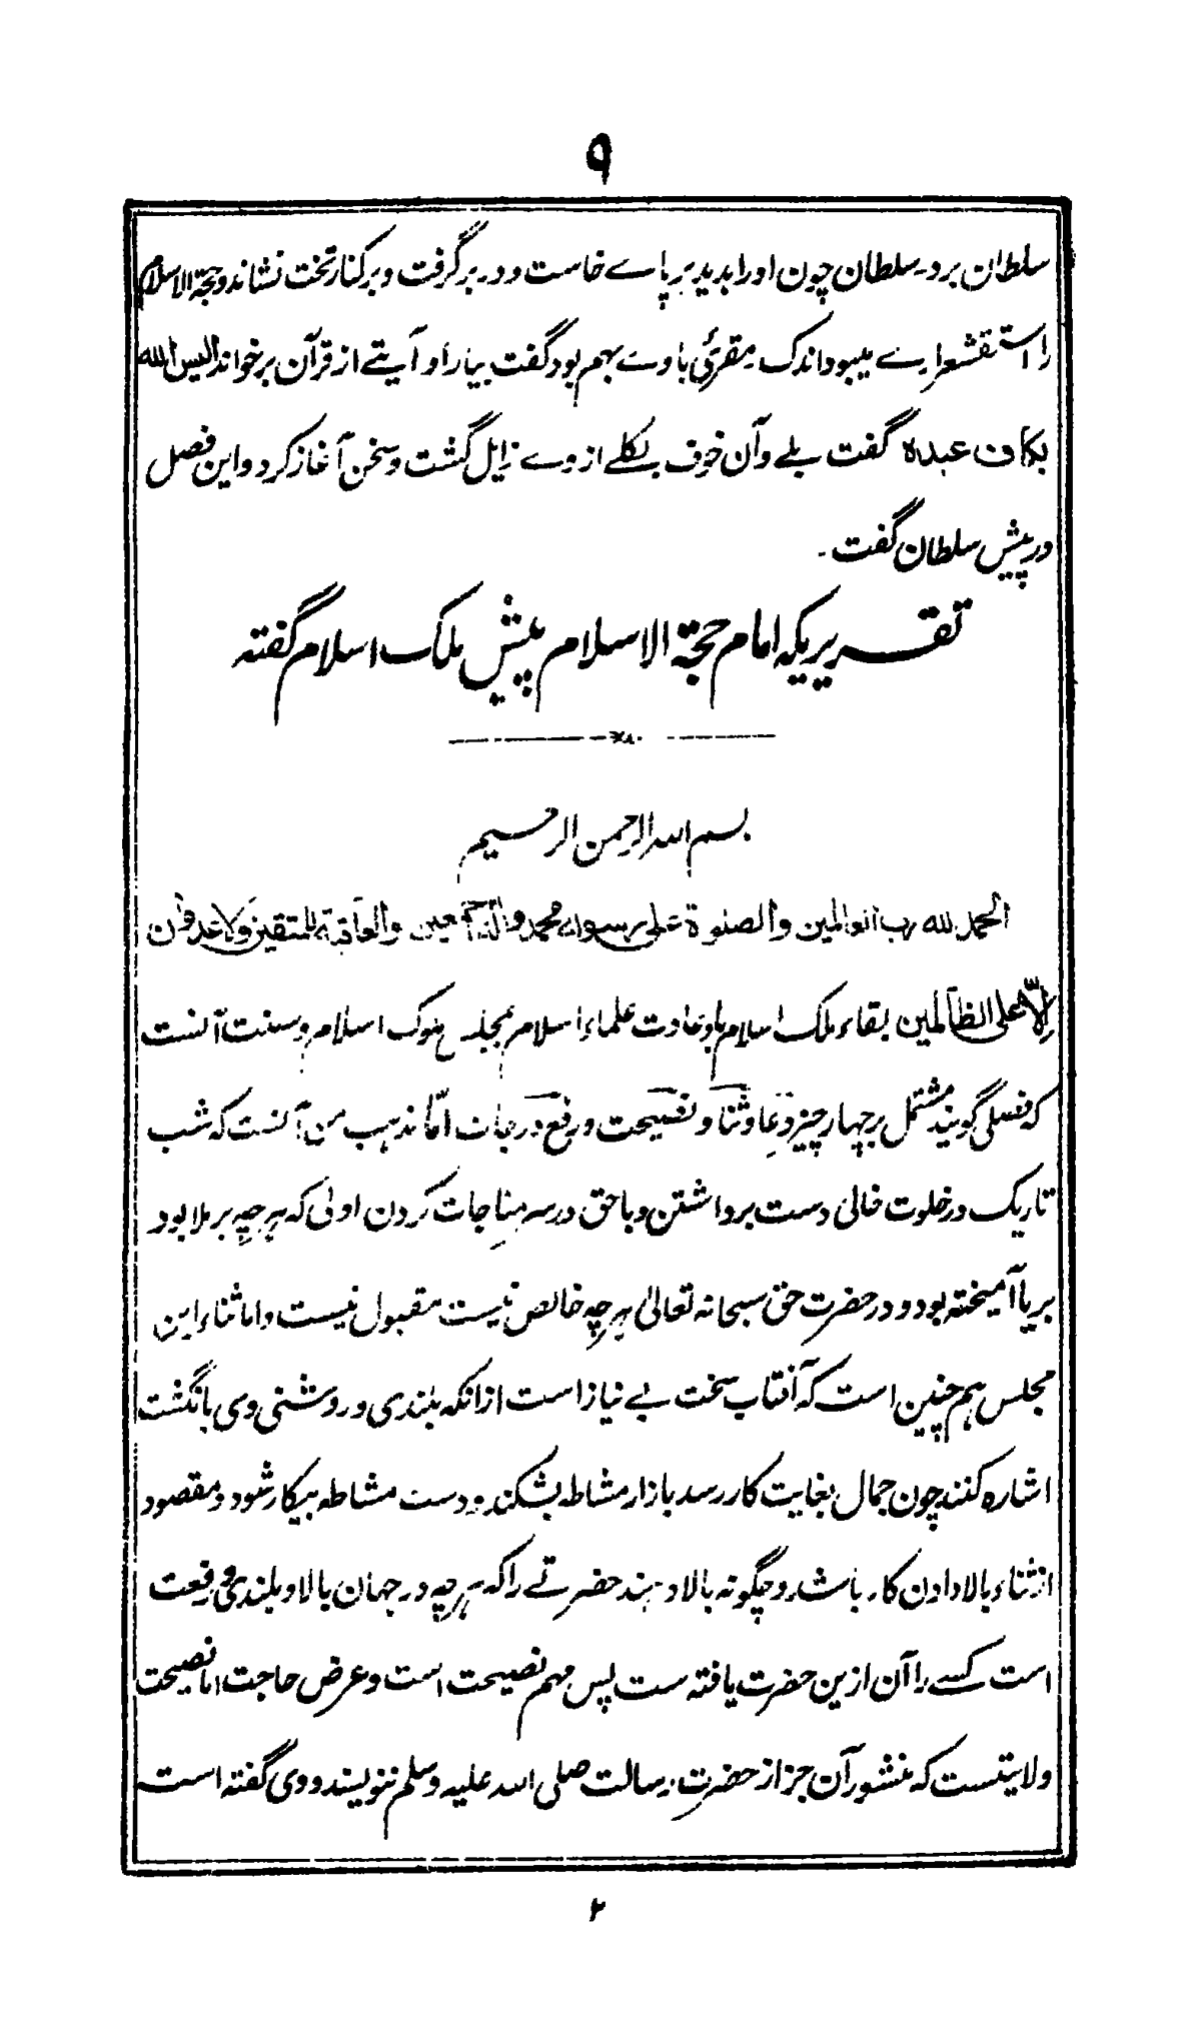 ۹
سلطان برد۔ سلطان چون اورا بدید برپاے خاست و در برگرفت و برکنار تخت نشاند و حجة الاسلام
را استقشعرارے میبود اندک مقرئ باوے بهم بود گفت بیار او آیتے از قرآن برخواند الیس الله
بکاف عبده گفت بلے و آن خوف بکلے از وے زایل گشت و سخن آغاز کرد و این فصل
در پیش سلطان گفت۔
تقریریکه امام حجة الاسلام پیش ملک اسلام گفته
بسم الله الرحمن الرحیم
الحمد لله رب العالمین والصلوة علی رسوله محمد وآله اجمعین والعاقبة للمتقین ولا عدوان
الّا علی الظالمین بقاء ملک اسلام باد عادت علماء اسلام بمجلس ملوک اسلام و سنت آنست
که فصلی گویند مشتمل بر چهار چیز دعا و ثنا و نصیحت و رفع درجات امّا مذهب من آنست که شب
تاریک در خلوت خالی دست برداشتن و با حق در سر مناجات کردن اولی که هرچه بر ملا بود
بریا آمیخته بود و در حضرت حق سبحانه تعالی هرچه خالص نیست مقبول نیست و اما ثناء این
مجلس هم چنین است که آفتاب سخت بے نیاز است ازانکه بلندی و روشنی وی بانگشت
اشاره کنند چون جمال بغایت کار رسد بازار مشاطه بشکند و دست مشاطه بیکار شود و مقصود
از ثناء بالا دادن کار باشد و چگونه بالا دهند حضرتے را که هرچه در جهان بالا و بلندی و رفعت
است کسے را آن ازین حضرت یافته ست پس مهم نصیحت است و عرض حاجت اما نصیحت
ولایتیست که منشور آن جز از حضرت رسالت صلی الله علیه وسلم ننویسند و وی گفته است
۲